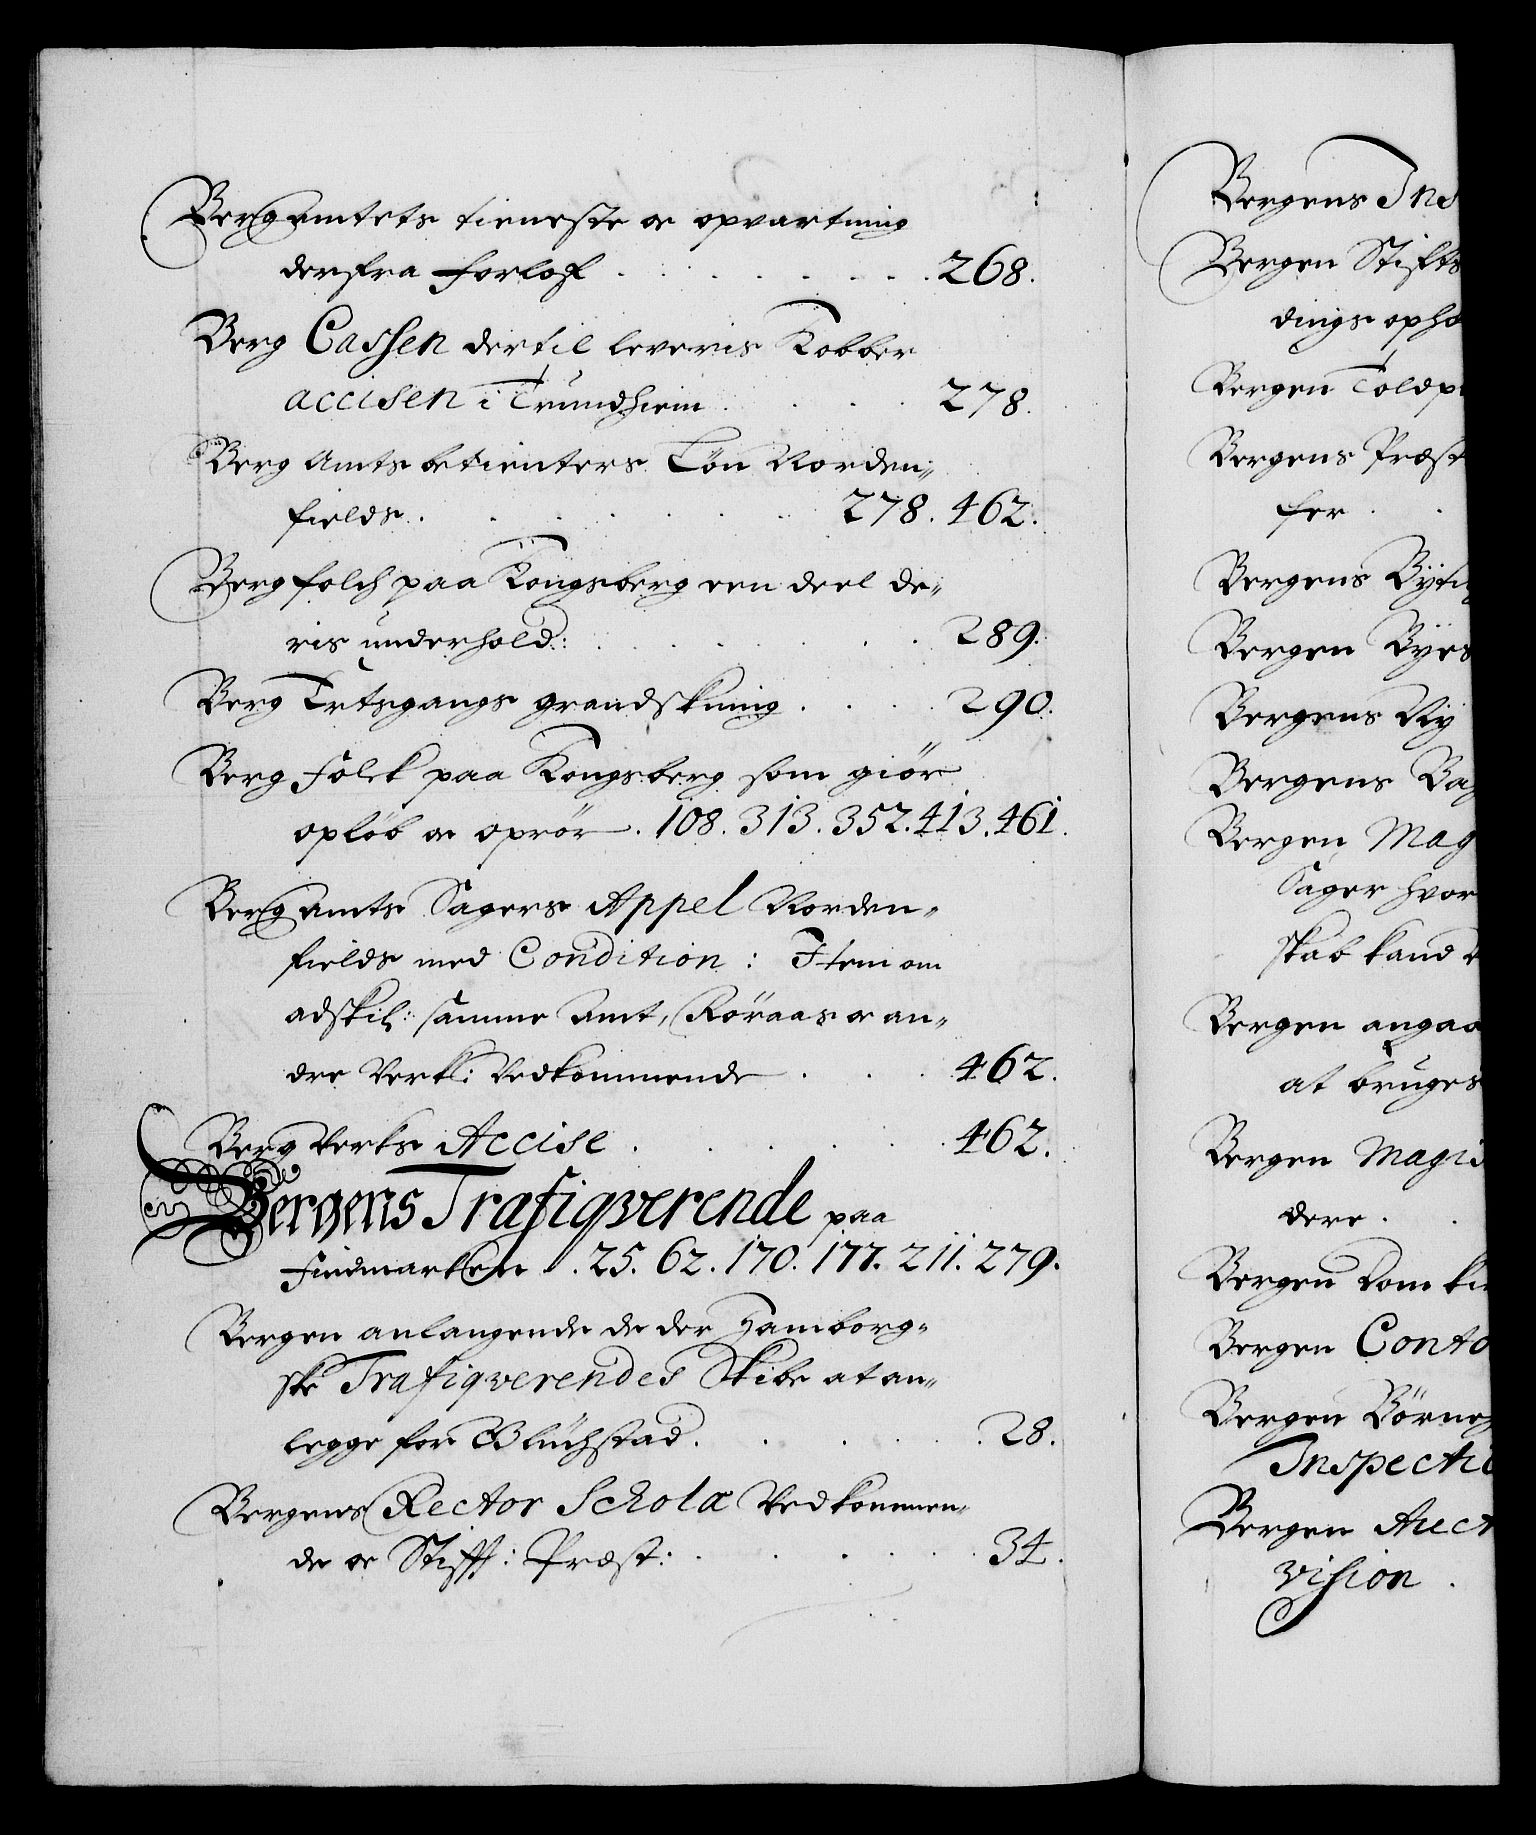 Bergamtets tieneste oc opvartning
derfra forlof . . . . . . . 268.
Berg Cassen dertil leveris Kobber
accisen i Trundhiem . . . . 278.
Berg Amts betienters Lön Norden„
fields . . . . . . . 278. 462.
Bergfolch paa Kongsberg een deel de„
ris underhold: . . . . . . 289.
Berg Ertsgangs grandskning . . . . 290.
Berg Folck paa Kongsberg som giör
oplöb oc oprör . 108. 313. 352. 413. 461.
Berg Amts Sagers Appel Norden„
fields med Condition : Item om
adskil: samme Amt, Röraas oc an„
dre Verk: Vedkommende . . . 462.
Berg Verks Accise . . . . . . 462.
Bergens Trafiqverende paa
Findmarken . 25. 62. 170. 177. 211. 279.
Bergen anlangende de der Hamborg„
ske Trafiqverendes Skibe at an„
legge for Glückstad . . . . . 28.
Bergens Rector Scholæ Vedkommen„
de oc Stiff: Præst: . . . . . 34.
Bergens Ins
Bergen Stifts
dings opho
Bergen Toldp
Bergens Præst
fer . .
Bergens Byting
Bergen Byes
Bergens Ny
Bergens
Bergen Mag
Sager hvor
skab kand
Bergen angaa
at bruges
Bergen Magis
dere . .
Bergen Dom kir
Bergen Conto
Bergen Börne
Inspectio
Bergen Auct
vision .